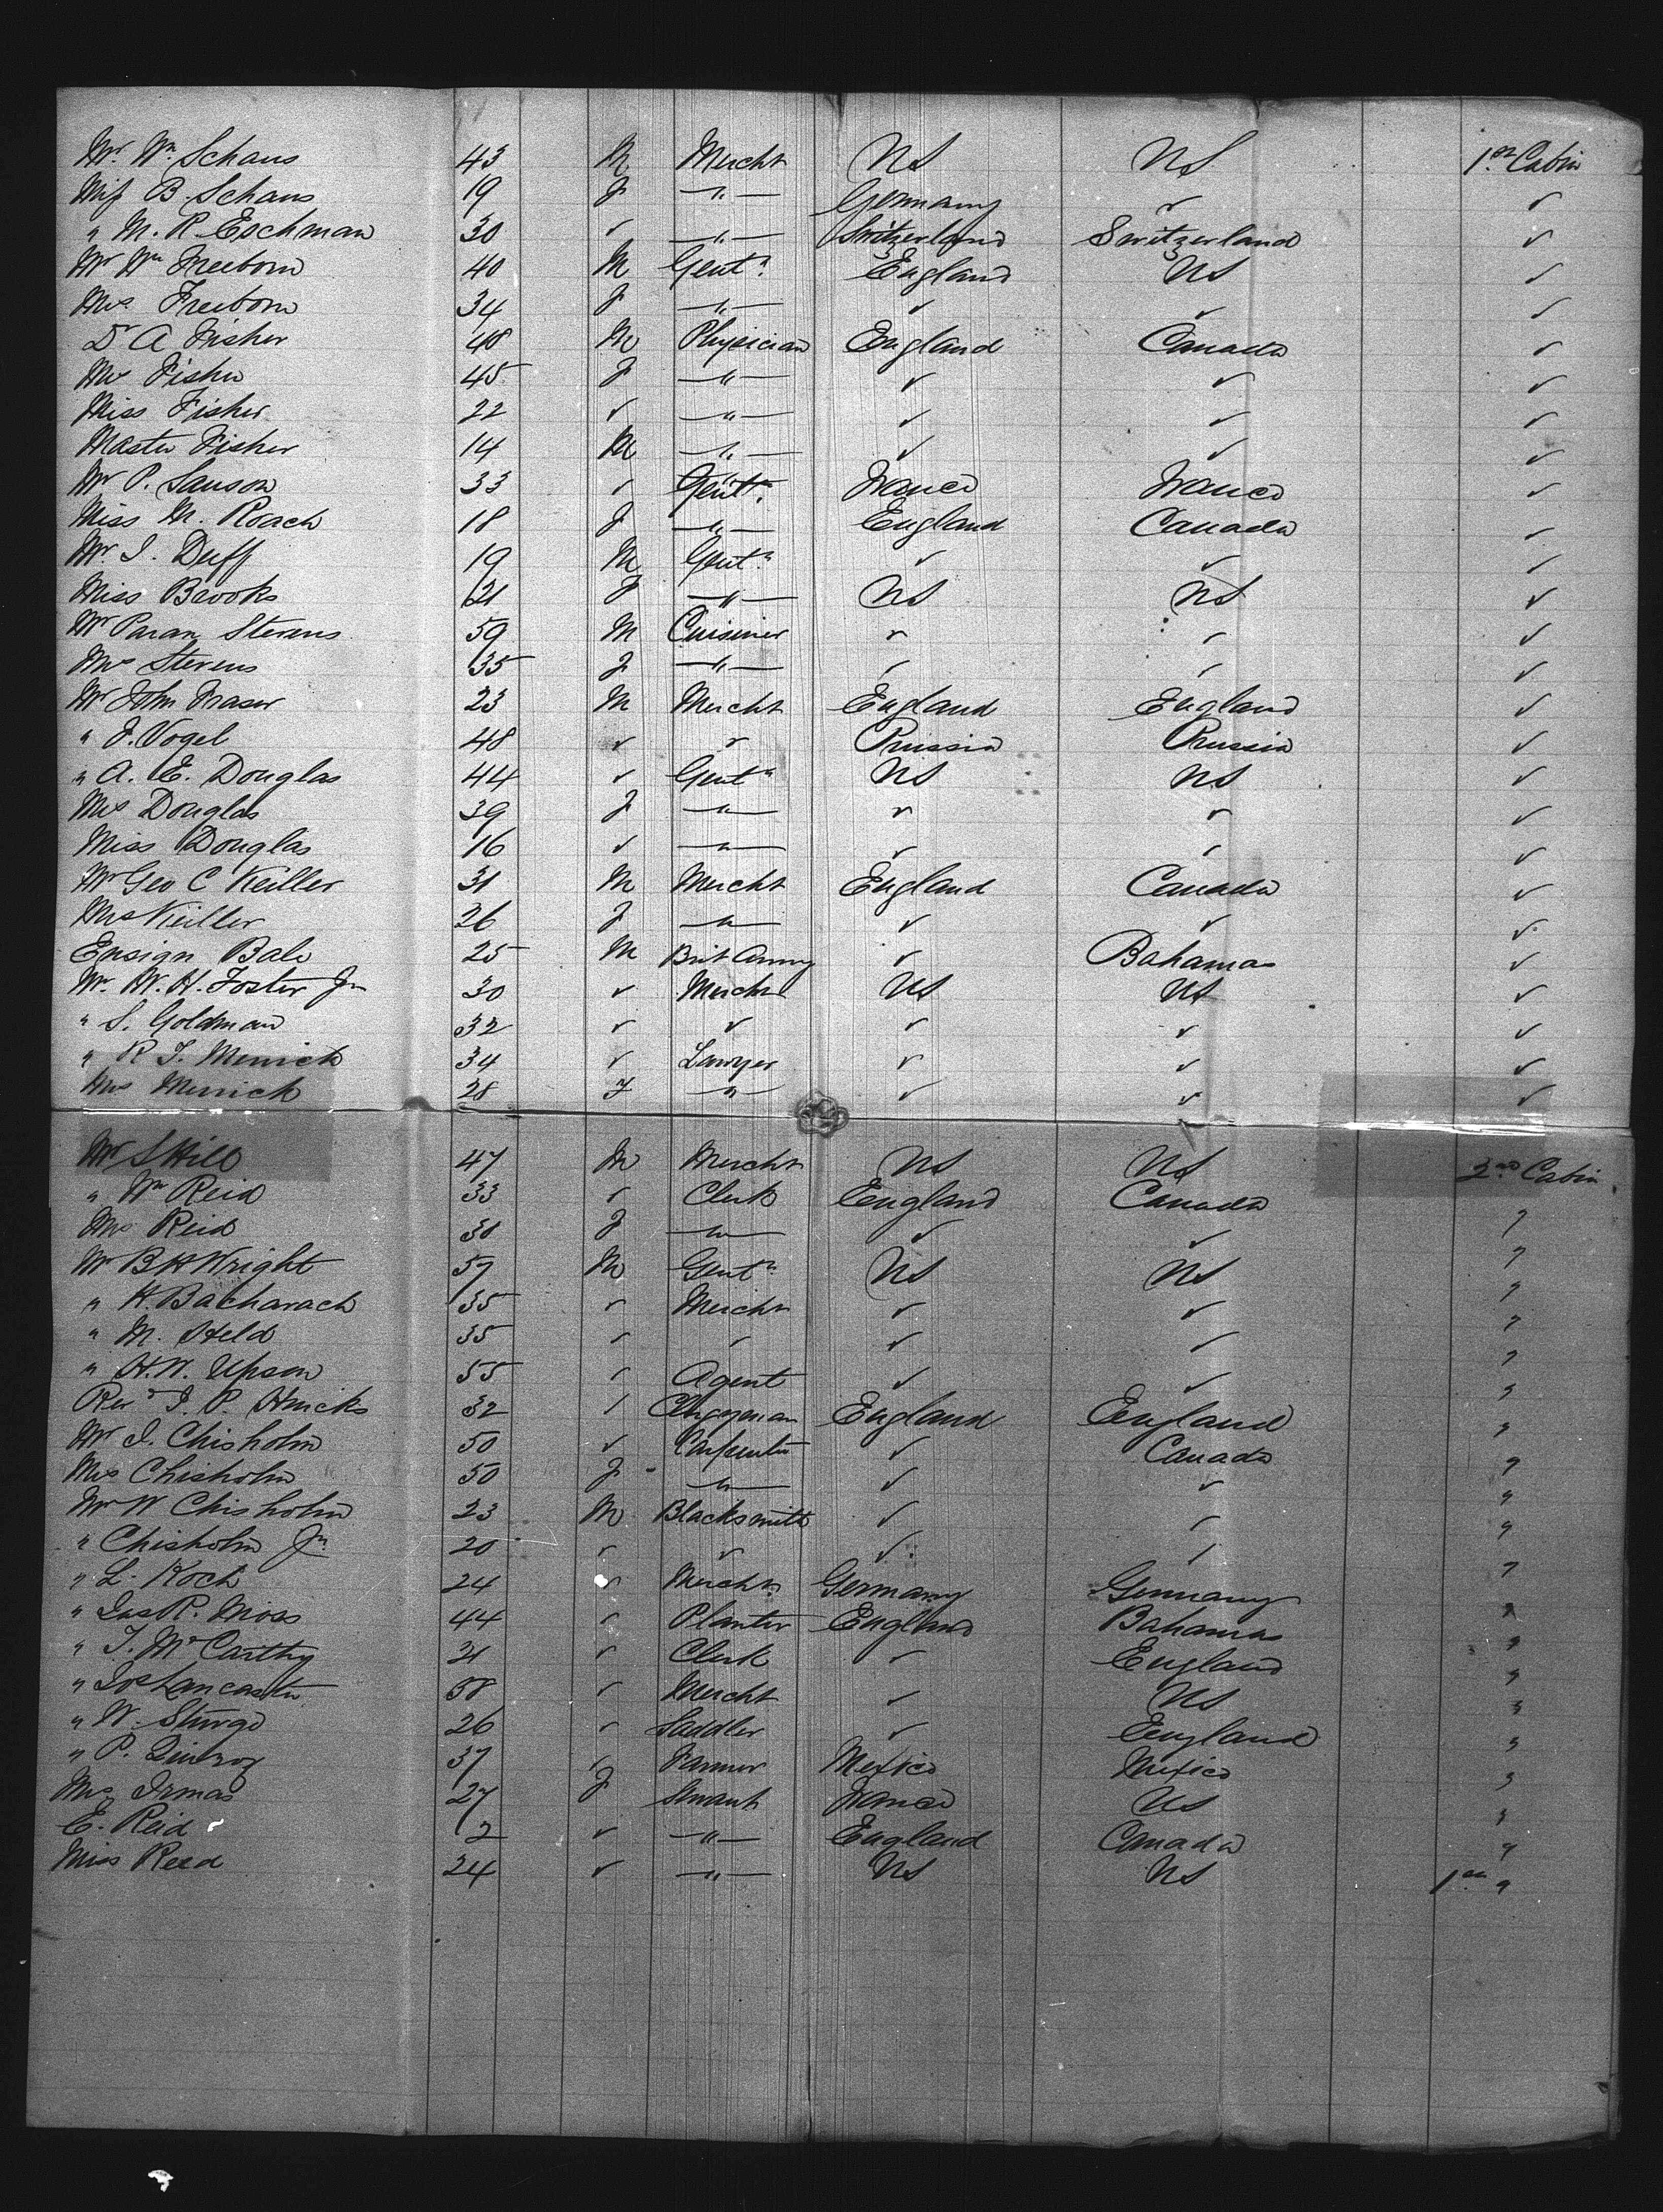 Mr. Wm Schaus 43 M Mercht US US 1st Cabin
Miss B. Schaus 19 F —"— Germany ✓ ✓
" M. R. Eschman 30 ✓ —"— Switzerland Switzerland ✓
Mr Wm Freeborn 40 M Gentn England US ✓
Mrs Freeborn 34 F —"— ✓ ✓ ✓
Dr A Fisher 48 M Physician England Canada ✓
Mrs Fisher 45 F —"— ✓ ✓ ✓
Miss Fisher 22 ✓ —"— ✓ ✓ ✓
Master Fisher 14 M —"— ✓ ✓ ✓
Mr P. Sauson 33 ✓ Gentn France France ✓
Miss M. Roach 18 F —"— England Canada ✓
Mr. J. Duff 19 M Gentn ✓ ✓ ✓
Miss Brooks 21 F —"— US US ✓
Mr Paran Stevens 59 M Cuisinier ✓ ✓ ✓
Mrs Stevens 35 F —"— ✓ ✓ ✓
Mr John Fraser 23 M Mercht England England ✓
" J. Vogel 48 ✓ ✓ Prussia Prussia ✓
" A. E. Douglas 44 ✓ Gentn US US ✓
Mrs Douglas 39 F —"— ✓ ✓ ✓
Miss Douglas 16 ✓ —"— ✓ ✓ ✓
Mr Geo C Keiller 31 M Mercht England Canada ✓
Mrs Keiller 26 F —"— ✓ ✓ ✓
Ensign Bale 25 M Brit Army ✓ Bahamas ✓
Mr. W. H. Foster Jr 30 ✓ Mercht US US ✓
" S. Goldman 32 ✓ ✓ ✓ ✓ ✓
" R T. Merrick 34 ✓ Lawyer ✓ ✓ ✓
Mrs Merrick 28 F —"— ✓ ✓ ✓
Mr S Hill 47 M Mercht US US 2nd Cabin
" Wm Reid 33 ✓ Clerk England Canada "
Mrs Reid 30 F —"— ✓ ✓ "
Mr B H Wright 57 M Gentn US US "
" H. Bacharach 35 ✓ Mercht ✓ ✓ "
" M. Held 35 ✓ ✓ ✓ ✓ "
" H. W. Upson 55 ✓ Agent ✓ ✓ "
Revd J. P. 32 ✓ Clergyman England England "
Mr J. Chisholm 50 ✓ Carpenter ✓ Canada "
Mrs Chisholm 50 F —"— ✓ ✓ "
Mr W Chisholm 23 M Blacksmith ✓ ✓ "
" Chisholm Jr. 20 ✓ ✓ ✓ ✓ "
" L. Koch 24 ✓ Mercht Germany Germany "
" Jas R. Moss 44 ✓ Planter England Bahamas "
" T. McCarthy 21 ✓ Clerk ✓ England "
" Jos Lancaster 58 ✓ Mercht ✓ US "
" W. Sturge 26 ✓ Saddler ✓ England "
" P. 37 ✓ Farmer Mexico Mexico "
Mrs Irmas 27 F Servant France US "
E. Reid 2 ✓ —"— England Canada "
Miss Reed 24 ✓ —"— US US 1st "